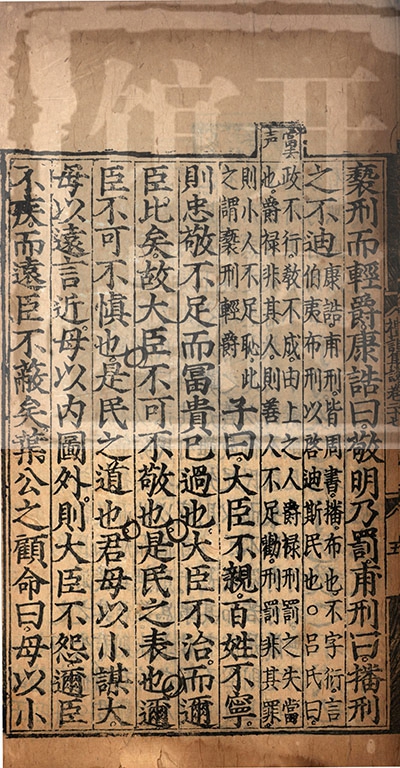 褻刑而輕爵康誥曰敬明乃罰甫刑曰播刑
之不迪
康誥甫刑皆周書播布也不字衍言
伯夷布刑以啓迪斯民也○呂氏曰
政不行教不成由上之人爵禄刑罰之失當
也爵禄非其人則善人不足勸刑罰非其罪
則小人不足恥此
之謂褻刑輕爵
子曰大臣不親百姓不寧
則忠敬不足而冨貴已過也大臣不治而邇
臣比矣故大臣不可不敬也是民之表也邇
臣不可不慎也是民之道也君毋以小謀大
毋以遠言近毋以内圖外則大臣不怨邇臣
不疾而遠臣不蔽矣葉公之顧命曰毋以小
声
館